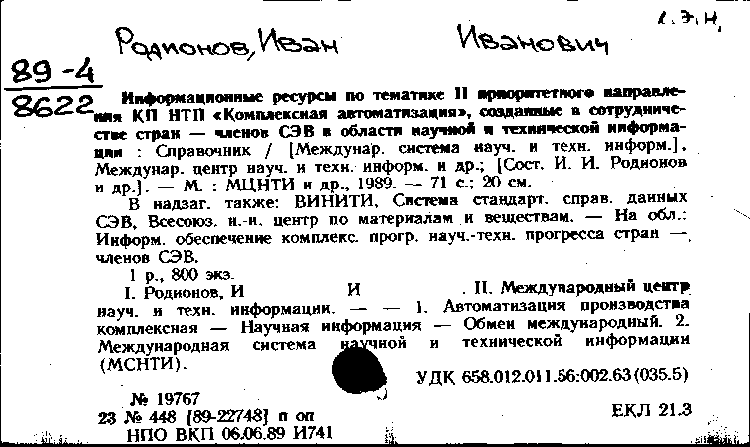 к.э.н,
Родионов, Иван Иванович
89-4
8622
Информационные ресурсы по тематике II приоритетного направле-
ния КП НТП «Комплексная автоматизация», созданные в сотрудниче-
стве стран — членов СЭВ в области научной и технической информа-
ции : Справочник / [Междунар. система науч. и техн. информ.],
Междунар. центр науч. и техн. информ. и др.; [Сост. И. И. Родионов
и др.]. — М. : МЦНТИ и др., 1989. — 71 с.; 20 см.
В надзаг. также: ВИНИТИ, Система стандарт. справ. данных
СЭВ, Всесоюз. н.-и. центр по материалам и веществам. — На обл.:
Информ. обеспечение комплекс. прогр. науч.-техн. прогресса стран —
членов СЭВ.
1 р., 800 экз.
I. Родионов, И И . II. Международный центр
науч. и техн. информации. — — 1. Автоматизация производства
комплексная — Научная информация — Обмен международный. 2.
Международная система научной и технической информации
(МСНТИ).
УДК 658.012.011.56:002.63(035.5)
№ 19767
23 № 448 [89-22748] п оп
ЕКЛ 21.3
НПО ВКП 06.06.89 И741